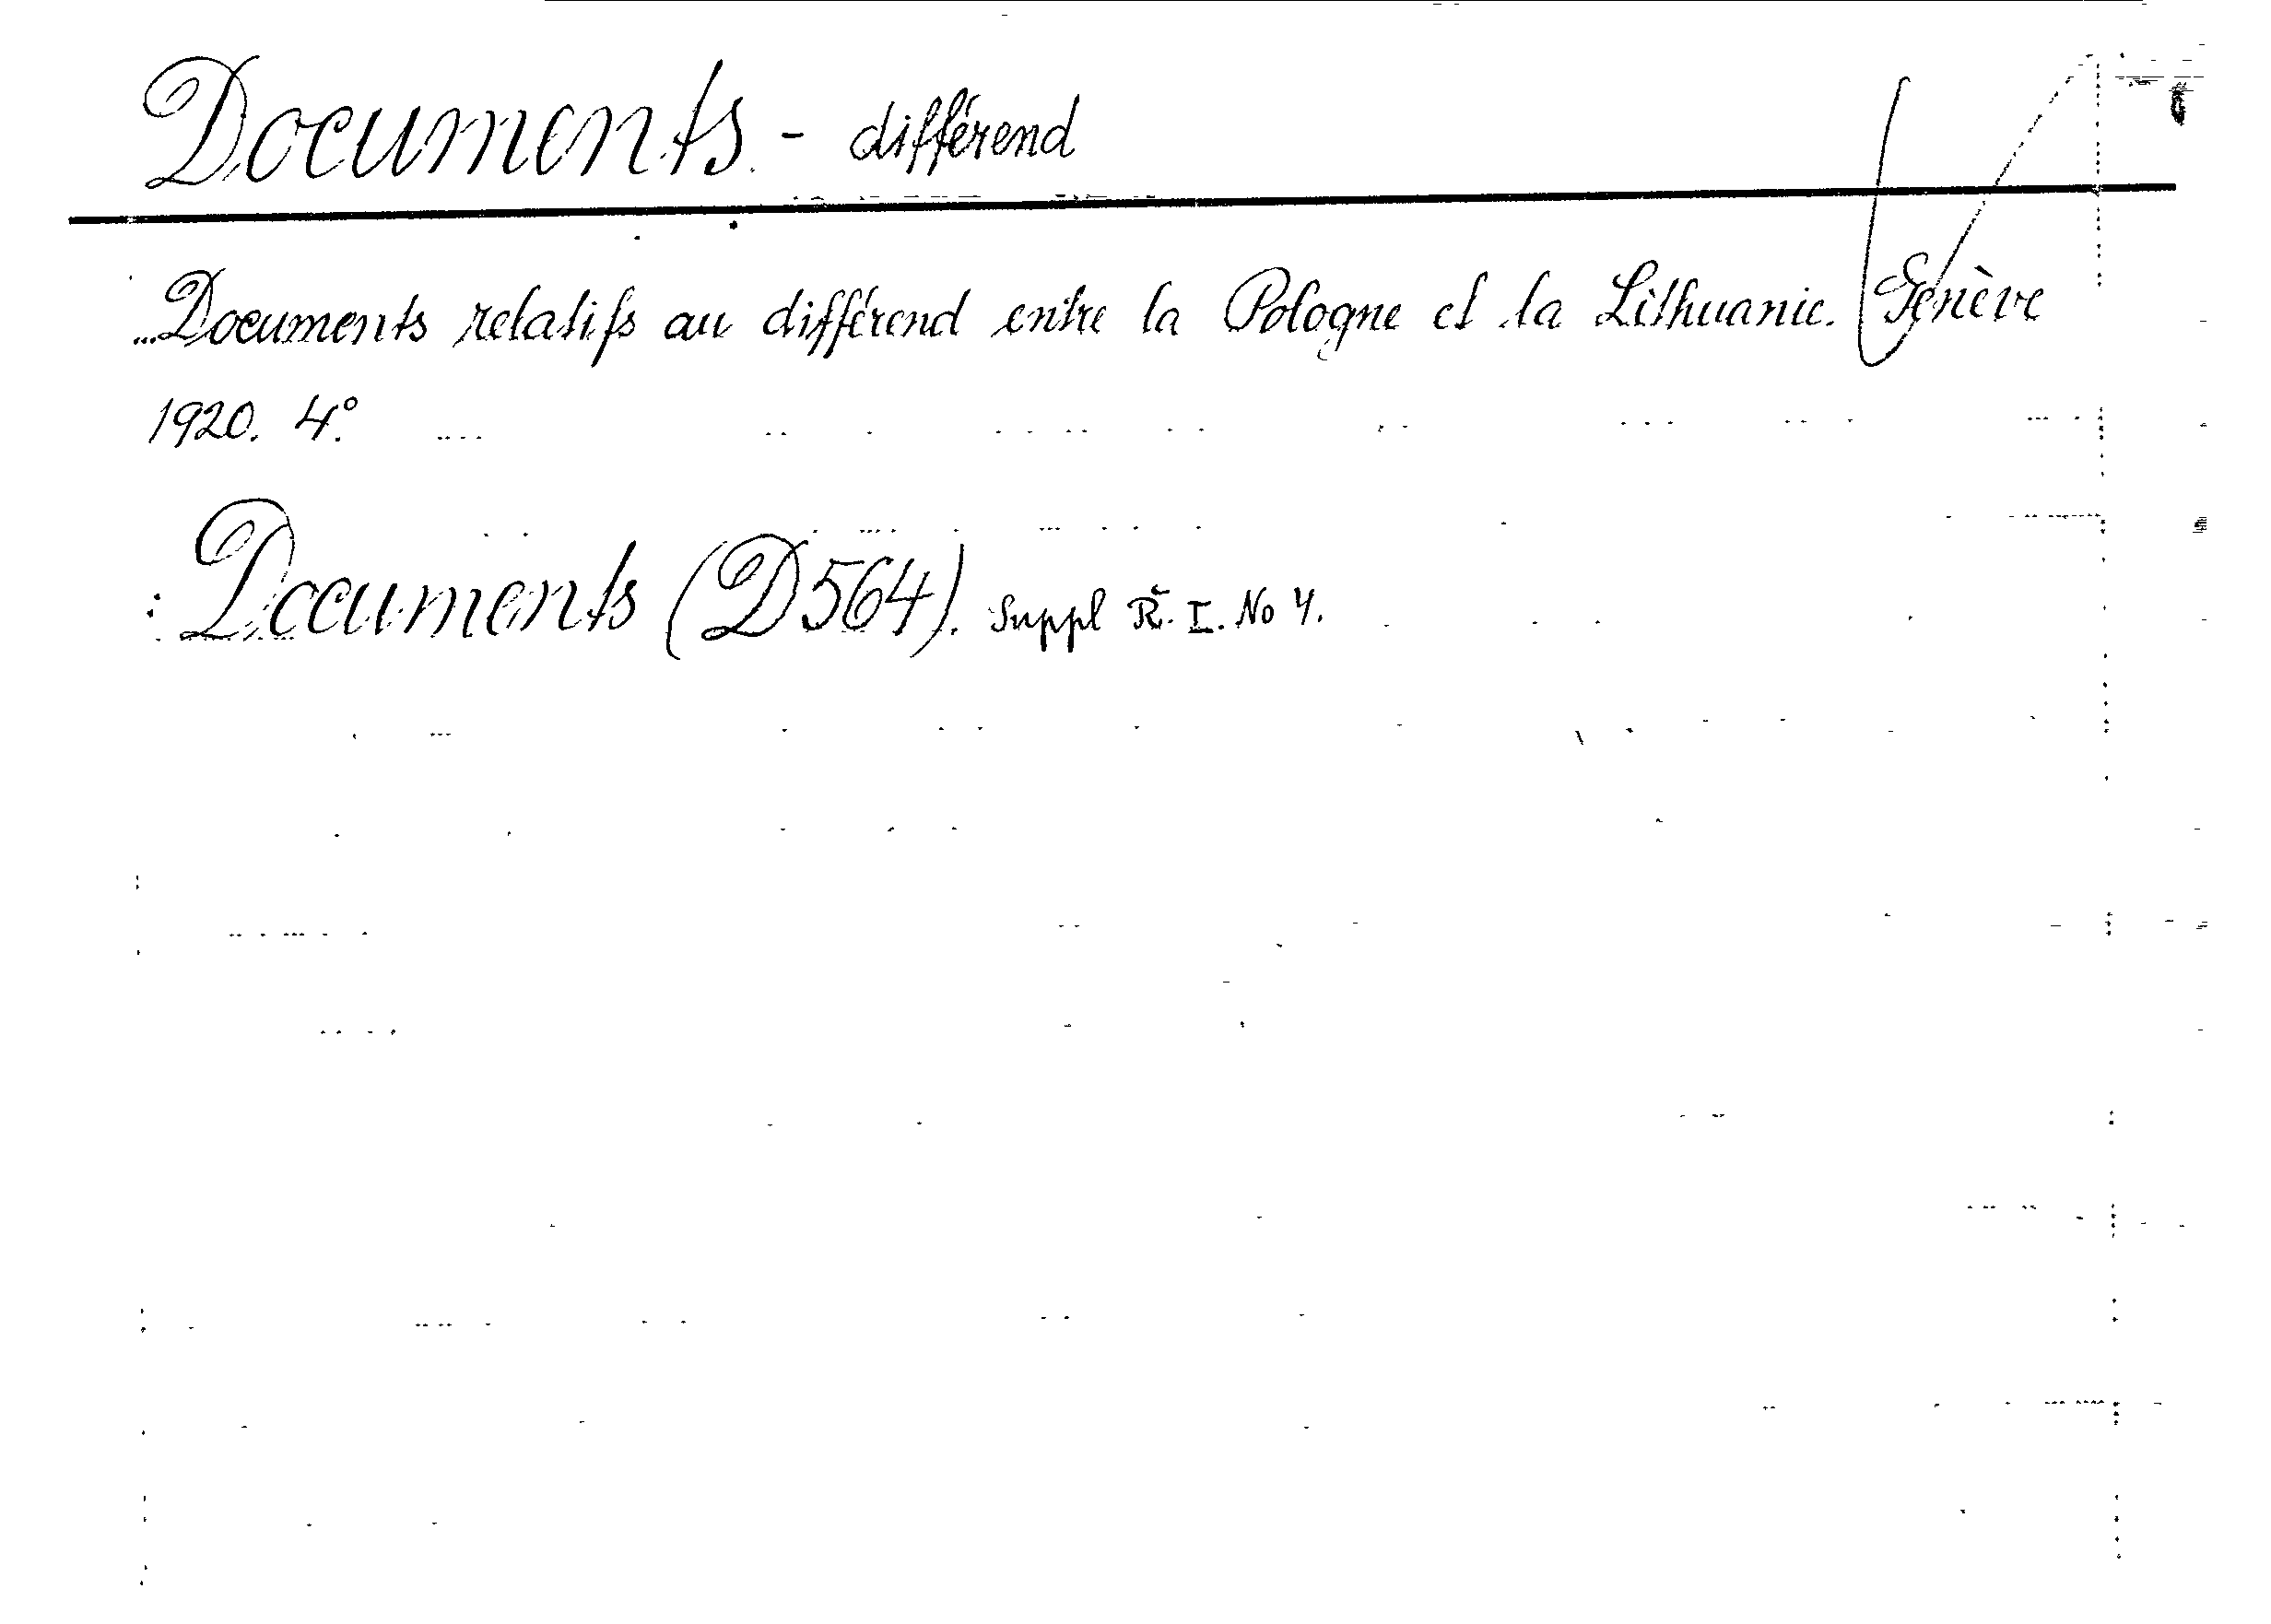 Documents - différend
Documents relatifs au différend entre la Pologne et la Lithuanie. Genève
1920. 4°.
Documents (D564). Suppl R. I. No 4.